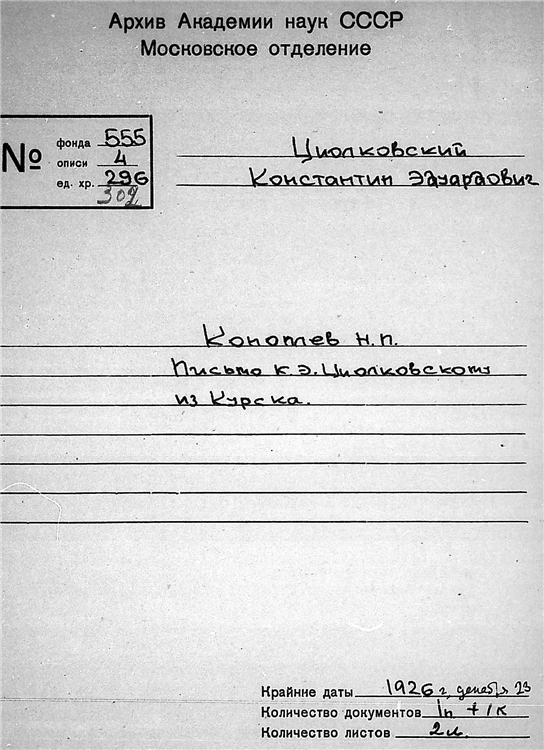 Архив Академии наук СССР
Московское отделение
№
фонда 555
описи 4
ед. хр. 296
302
Циолковский
Константин Эдуардович
Копотев Н.П.
Письмо К.Э. Циолковскому
из Курска.
Крайние даты 1926 г, декабря 23
Количество документов 1п + 1к
Количество листов 2л.